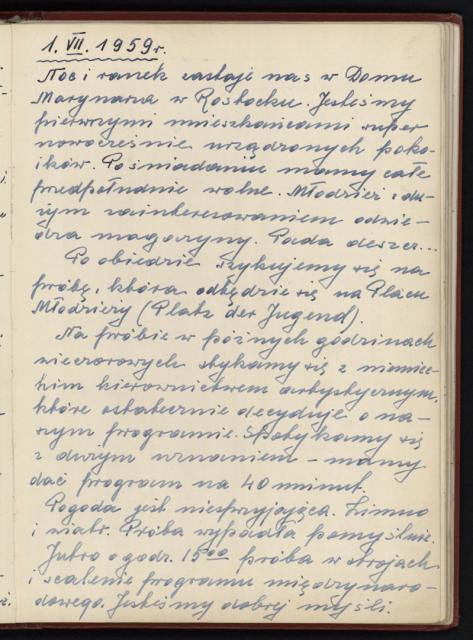 1. VII. 1959r.
Noc i ranek zastaje nas w Domu
Marynarza w Rostocku. Jesteśmy
pierwszymi mieszkańcami super
nowocześnie urządzonych poko-
ików. Po śniadaniu mamy całe
przedpołudnie wolne. Młodzież z du-
żym zainteresowaniem odwie-
dza magazyny. Pada deszcz...
Po obiedzie szykujemy się na
próbę, która odbędzie się na Placu
Młodzieży (Platz der Jugend).
Na próbie w późnych godzinach
wieczorowych stykamy się z niemiec-
kim kierownictwem artystycznym,
które ostatecznie decyduje o na-
szym programie. Spotykamy się
z dużym uznaniem - mamy
dać program na 40 minut.
Pogoda jest niesprzyjająca. Zimno
i wiatr. Próba wypadła pomyślnie.
Jutro o godz. 15⁰⁰ próba w strojach
i scalenie programu międzynaro-
dowego. Jesteśmy dobrej myśli.